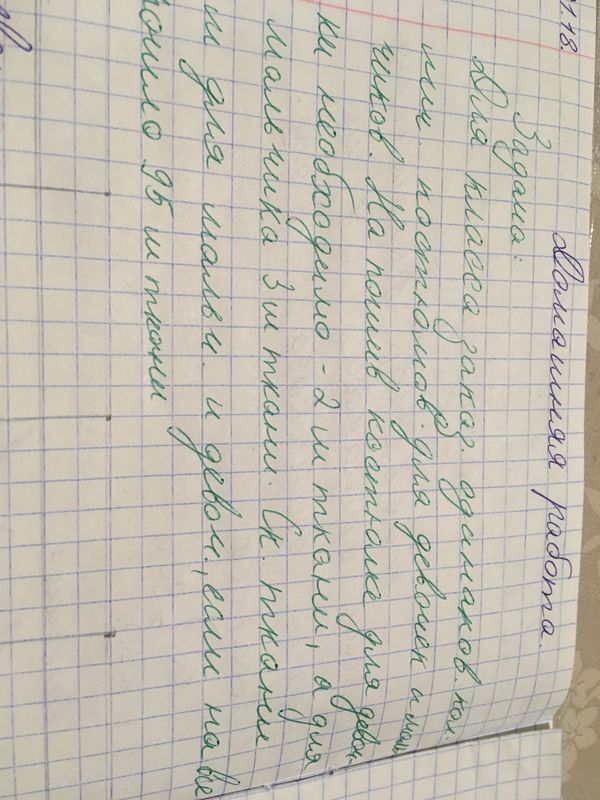 1.18.
Домашняя работа.
Задача:
Для класса заказ. одинаков. кол.
костюмов для девочек и маль
чиков. На пошив костюма для девоч
ки необходимо - 2 м ткани, а для
мальчика 3 м ткани. Ск. ткани
для мальч. и девоч., если на все
пошло 95 м ткани